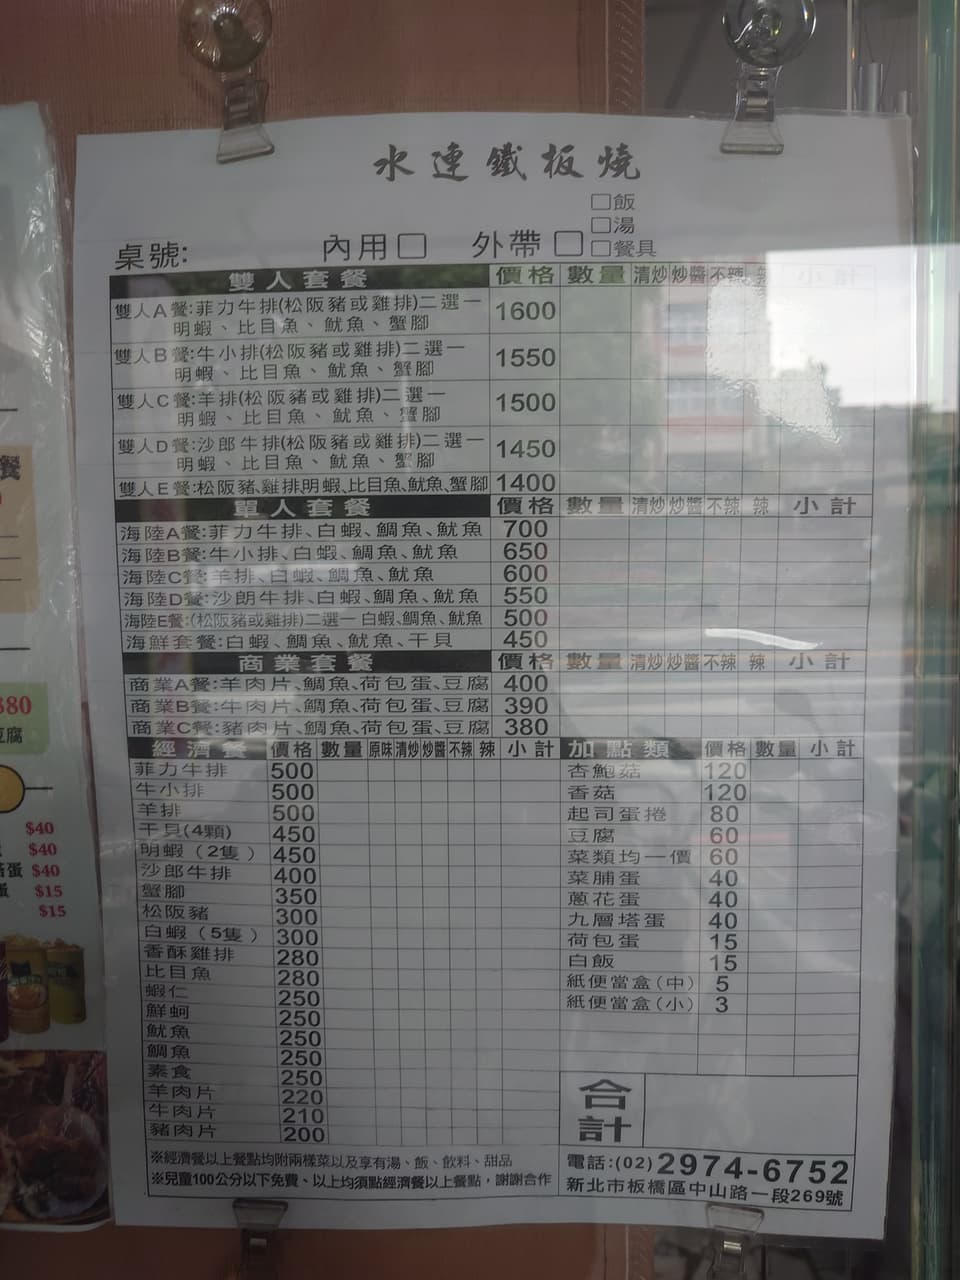 水連鐵板燒
□飯
□湯
桌號: 內用□ 外帶□ □餐具
雙人套餐 價格 數量 清炒 炒醬 不辣 辣 小計
雙人A餐:菲力牛排(松阪豬或雞排)二選一 1600
明蝦、比目魚、魷魚、蟹腳
雙人B餐:牛小排(松阪豬或雞排)二選一 1550
明蝦、比目魚、魷魚、蟹腳
雙人C餐:羊排(松阪豬或雞排)二選一 1500
明蝦、比目魚、魷魚、蟹腳
雙人D餐:沙郎牛排(松阪豬或雞排)二選一 1450
明蝦、比目魚、魷魚、蟹腳
雙人E餐:松阪豬、雞排、明蝦、比目魚、魷魚、蟹腳 1400
單人套餐 價格 數量 清炒 炒醬 不辣 辣 小計
海陸A餐:菲力牛排、白蝦、鯛魚、魷魚 700
海陸B餐:牛小排、白蝦、鯛魚、魷魚 650
海陸C餐:羊排、白蝦、鯛魚、魷魚 600
海陸D餐:沙朗牛排、白蝦、鯛魚、魷魚 550
海陸E餐:(松阪豬或雞排)二選一 白蝦、鯛魚、魷魚 500
海鮮套餐:白蝦、鯛魚、魷魚、干貝 450
商業套餐 價格 數量 清炒 炒醬 不辣 辣 小計
商業A餐:羊肉片、鯛魚、荷包蛋、豆腐 400
商業B餐:牛肉片、鯛魚、荷包蛋、豆腐 390
商業C餐:豬肉片、鯛魚、荷包蛋、豆腐 380
經濟餐 價格 數量 原味 清炒 炒醬 不辣 辣 小計
菲力牛排 500
牛小排 500
羊排 500
干貝(4顆) 450
明蝦（2隻） 450
沙郎牛排 400
蟹腳 350
松阪豬 300
白蝦（5隻） 300
香酥雞排 280
比目魚 280
蝦仁 250
鮮蚵 250
魷魚 250
鯛魚 250
素食 250
羊肉片 220
牛肉片 210
豬肉片 200
※經濟餐以上餐點均附兩樣菜以及享有湯、飯、飲料、甜品
※兒童100公分以下免費、以上均須點經濟餐以上餐點，謝謝合作
加點類 價格 數量 小計
杏鮑菇 120
香菇 120
起司蛋捲 80
豆腐 60
菜類均一價 60
菜脯蛋 40
蔥花蛋 40
九層塔蛋 40
荷包蛋 15
白飯 15
紙便當盒(中) 5
紙便當盒(小) 3
合計
電話:(02)2974-6752
新北市板橋區中山路一段269號
餐
$80
豆腐
$40
$40
蛋 $40
蛋 $15
$15